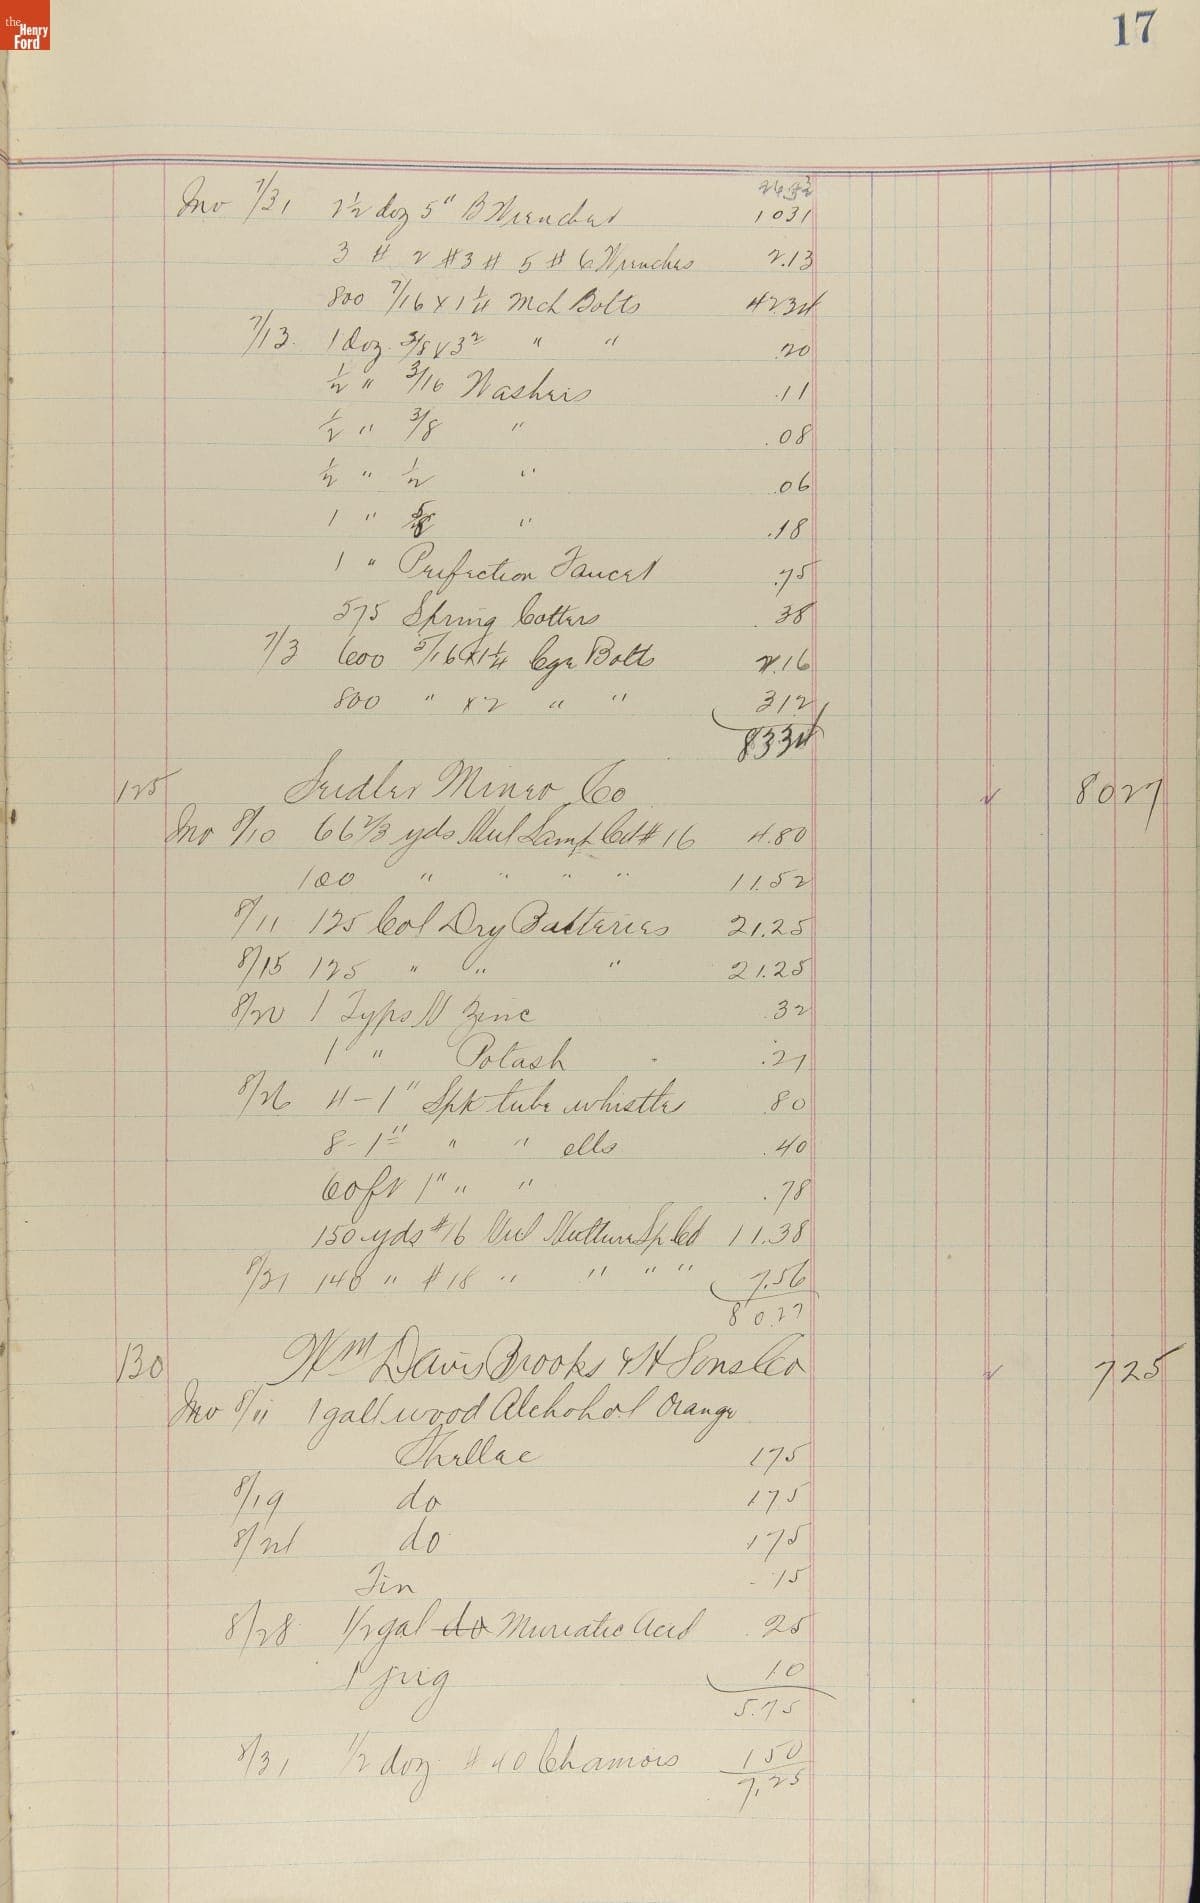 the
Henry
Ford
17
Inv 7/31 1½ doz 5" B Wrenches 1031
3 # 2 #3 # 5 # 6 Wrenches 2.13
800 7/16 x 1¼ Mch Bolts 42.34
7/13. 1 Doz. 3/8 x 3½ " " .20
½ " 3/16 Washers .11
½ " 3/8 " .08
½ " ½ " .06
1 " 5/8 " .18
1 " Perfection Faucet .75
575 Spring Cotters .38
7/3 600 5/16 x 1¼ Cge Bolts 2.16
800 " x 2 " " 312
8334
125 Seidler Miner Co ✓ 8027
Inv 8/10 66 2/3 yds Mul Lamp Cd # 16 4.80
100 " " " " 11.52
8/11 125 Col Dry Batteries 21.25
8/15 125 " " " 21.25
8/20 1 Type M Zinc .32
1 " Potash .21
8/26 4 - 1" Spk tube whistles .80
8 - 1" " " ells .40
60 ft 1" " " .78
150 yds #16 Sp Cd 11.38
8/31 140 " #18 " " " " 7.56
80.27
130 Wm Davis Brooks & H Sons Co ✓ 725
Inv 8/11 1 gall wood Alchohol Orange
Shellac 175
8/19 do 175
8/21 do 175
Tin .15
8/28 1/2 gal do Muriatic Acid .25
1 jug 10
5.75
8/31 1/2 doz # 40 Chamois 150
7.25